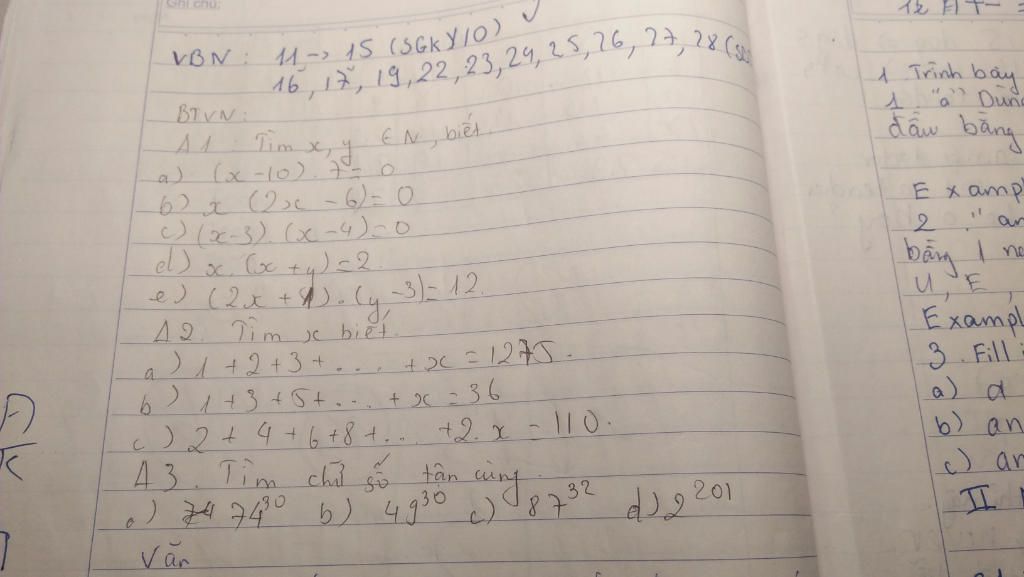 Ghi chú:
VBN: 11 → 15 (SGK)/10)
16, 17, 19, 22, 23, 24, 25, 26, 27, 28 (
BTVN:
A1. Tìm x, y ∈ N, biết.
a) (x-10). 7 = 0
b) x (2x - 6) = 0
c) (x-3). (x-4) = 0
d) x. (x + y) = 2.
e) (2x + 1). (y - 3) = 12.
A2. Tìm x biết.
a) 1 + 2 + 3 + .... + x = 1275.
b) 1 + 3 + 5 + .... + x = 36
c) 2 + 4 + 6 + 8 + ... + 2. x = 110.
A3. Tìm chữ số tận cùng
a) 74³⁰ b) 49³⁰ c) 87³² d) 2²⁰¹
Văn
1 Trình bày
1 "a" Dùng
đầu bằng
Exampl
2 "an
bằng 1
U, E,
Exampl
3. Fill i
a) a
b) an
c) an
II